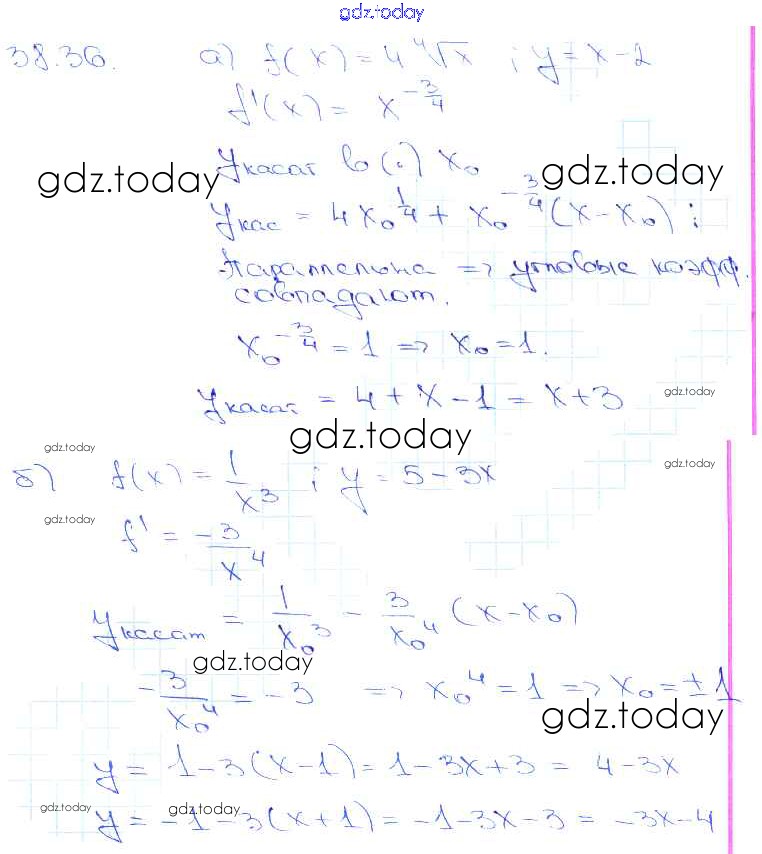 gdz.today
38.36. а) f(x) = 4 ⁴√x ; y = x − 2
f'(x) = x^(−3/4)
y касат в (·) x₀
gdz.today gdz.today
y кас = 4x₀^(1/4) + x₀^(−3/4) (x − x₀) ;
Параллельна => угловые коэфф.
совпадают.
x₀^(−3/4) = 1 => x₀ = 1.
gdz.today
y касат = 4 + x − 1 = x + 3
gdz.today
gdz.today gdz.today
б) f(x) = 1/x³ ; y = 5 − 3x
gdz.today
f' = −3/x⁴
y касат = 1/x₀³ − 3/x₀⁴ (x − x₀)
gdz.today
−3/x₀⁴ = −3 => x₀⁴ = 1 => x₀ = ±1
gdz.today
y = 1 − 3(x − 1) = 1 − 3x + 3 = 4 − 3x
gdz.today gdz.today
y = −1 − 3(x + 1) = −1 − 3x − 3 = −3x − 4